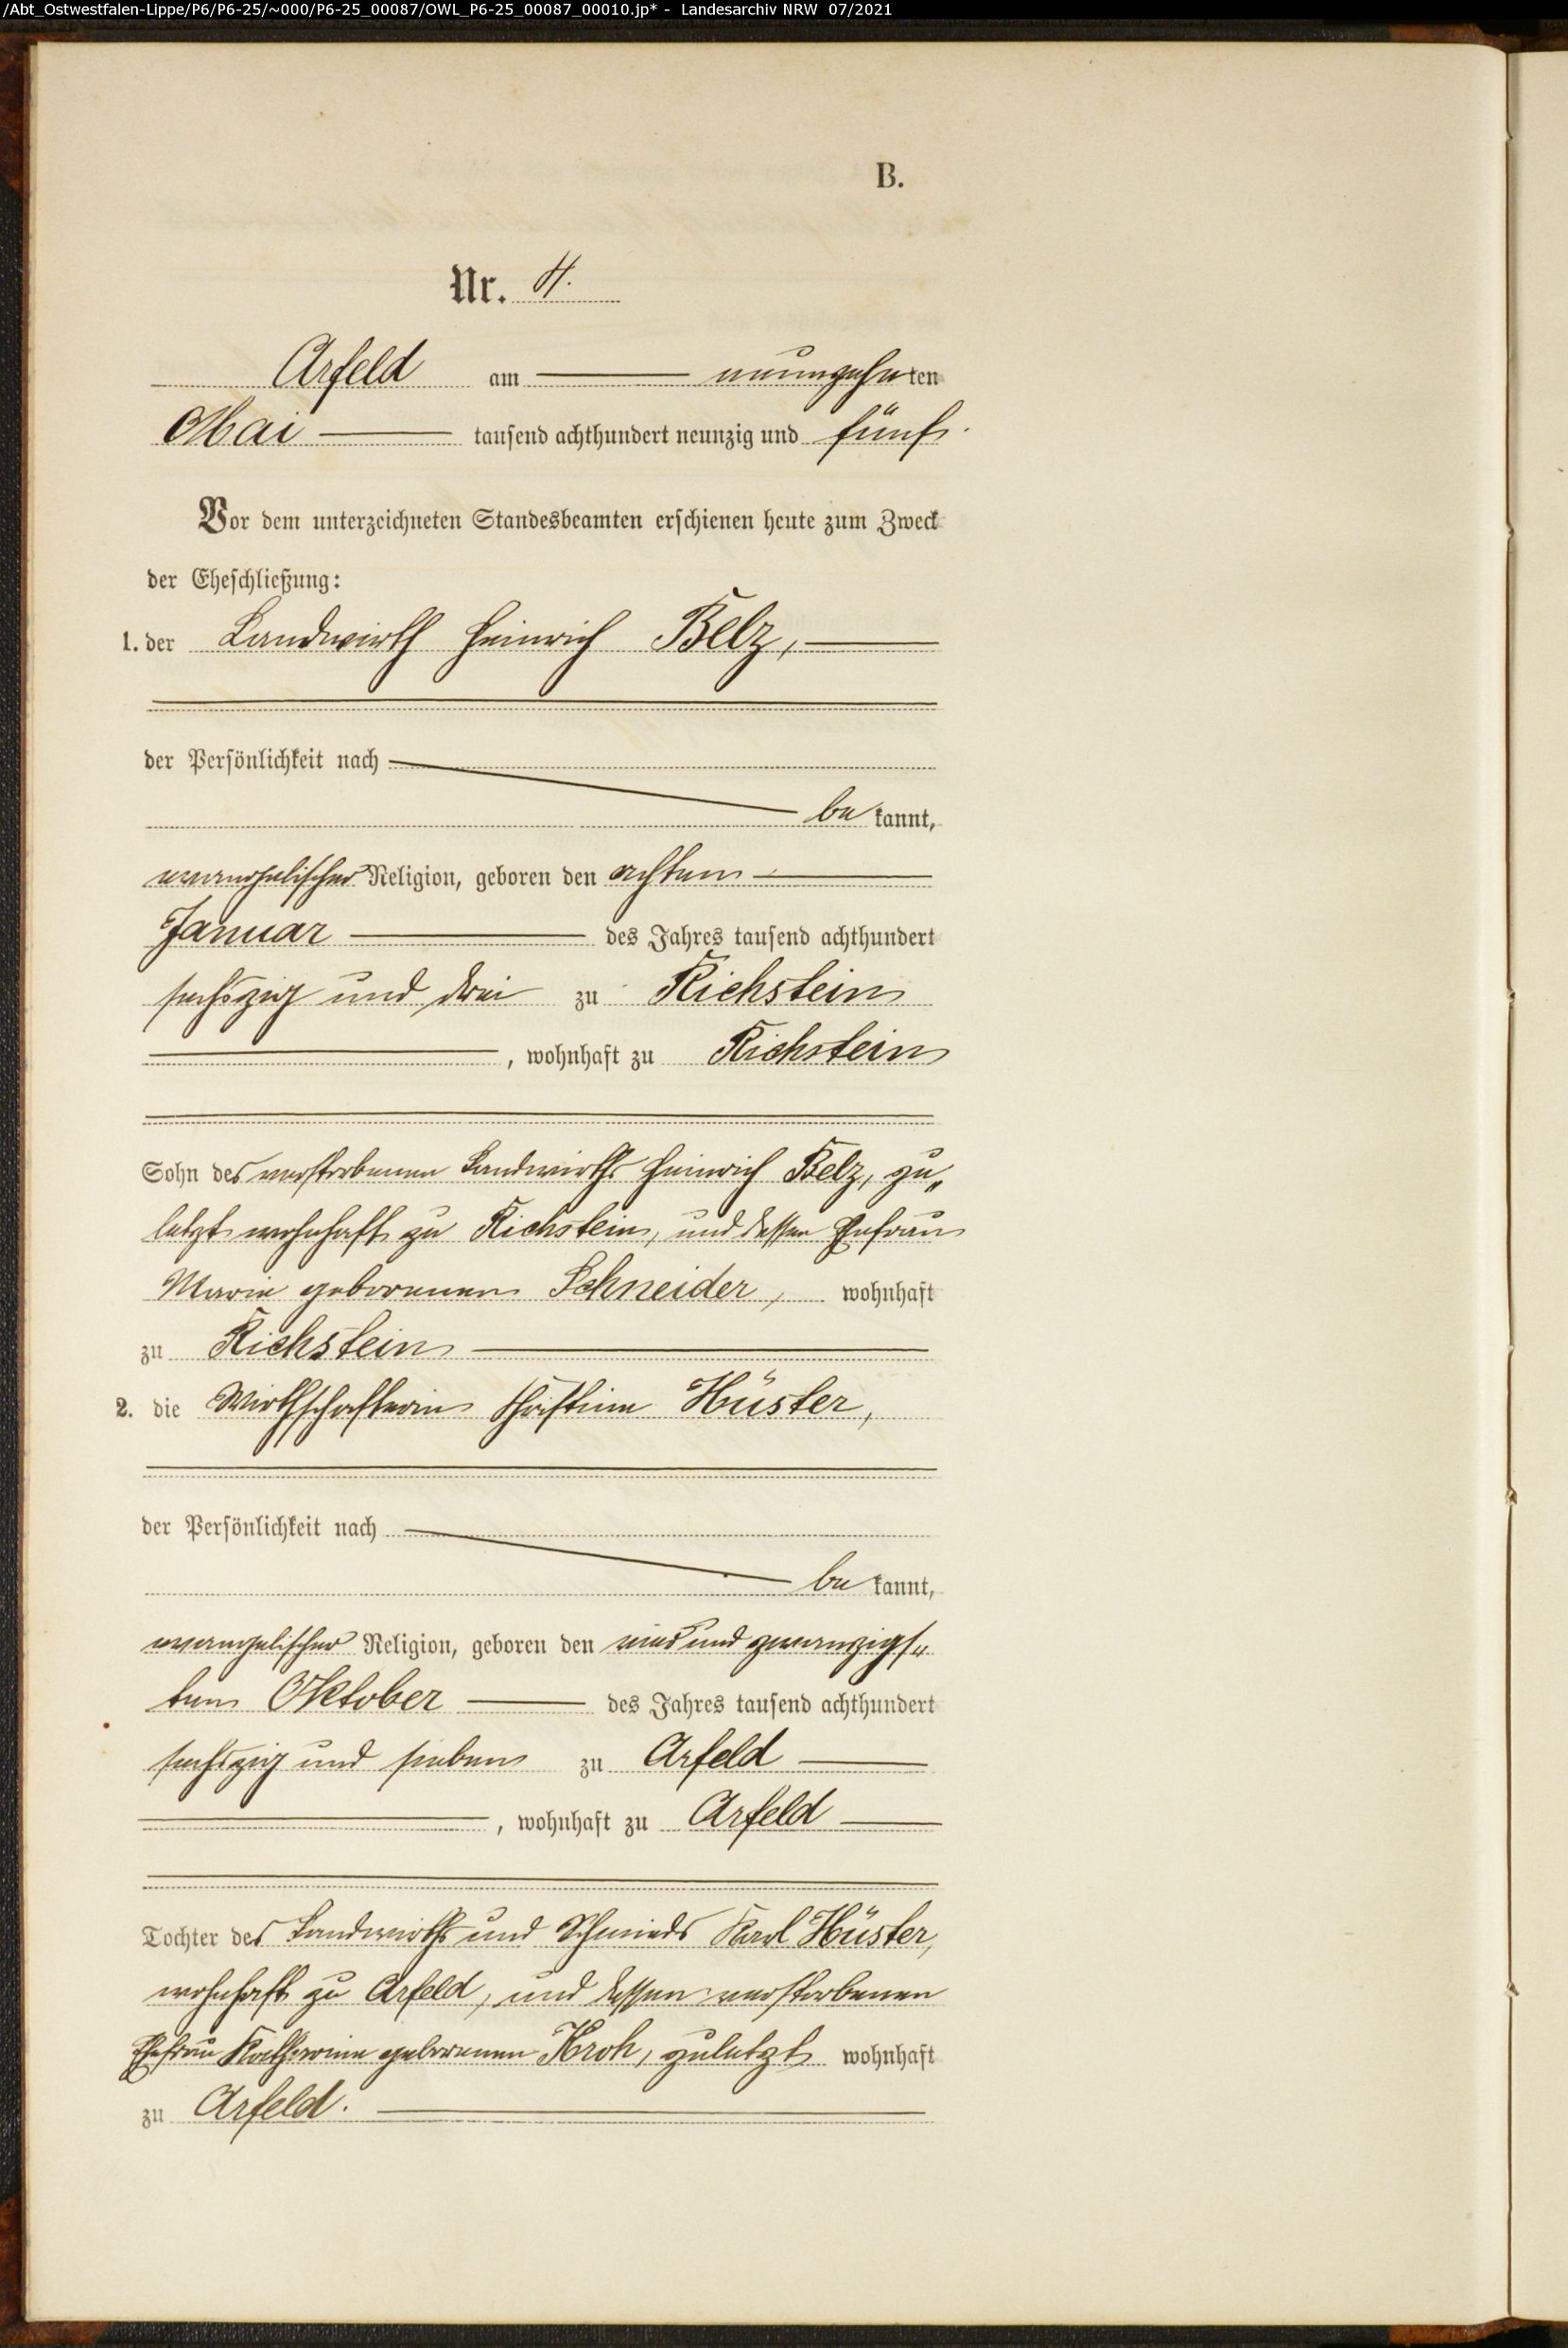 /Abt_Ostwestfalen-Lippe/P6/P6-25/~000/P6-25_00087/OWL_P6-25_00087_00010.jp* - Landesarchiv NRW 07/2021
B.
Nr. 4.
Arfeld am neunzehnten
Mai tausend achthundert neunzig und fünf.
Vor dem unterzeichneten Standesbeamten erschienen heute zum Zweck
der Eheschließung:
1. der Landwirth Heinrich Belz,
der Persönlichkeit nach
be kannt,
evangelischer Religion, geboren den achten
Januar des Jahres tausend achthundert
sechszig und drei zu Richstein
, wohnhaft zu Richstein
Sohn des verstorbenen Landwirths Heinrich Belz, zu„
letzt wohnhaft zu Richstein, und dessen Ehefrau
Marie geborenen Schneider, wohnhaft
zu Richstein
2. die Wirthschafterin Christine Hüster,
der Persönlichkeit nach
be kannt,
evangelischer Religion, geboren den vier und zwanzigs„
ten Oktober des Jahres tausend achthundert
sechszig und sieben zu Arfeld
, wohnhaft zu Arfeld
Tochter des Landwirths und Schmieds Karl Hüster,
wohnhaft zu Arfeld, und dessen verstorbenen
Ehefrau Katharine geborenen Kroh, zuletzt wohnhaft
zu Arfeld.